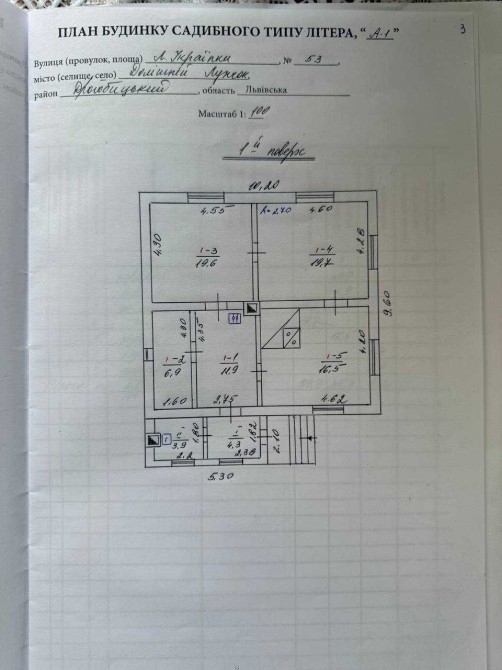 3
ПЛАН БУДИНКУ САДИБНОГО ТИПУ ЛІТЕРА, “ А-1 ”
Вулиця (провулок, площа) Л. Українки , № 53 ,
місто (селище, село) Долішній Лужок,
район Дрогобицький , область Львівська
Масштаб 1: 100
1й поверх
10,20
4.55 h=2.70 4.60
4.30 4.28
1-3 1-4
19.6 19,7
9.60
4.30 4.35 4.20
1-2 1-1 1-5
6,9 11.9 16,5
1.60 2,75 4.62
I I
3,9 1.80 4.3 1.82 2.10
2.2 2,38
5.30